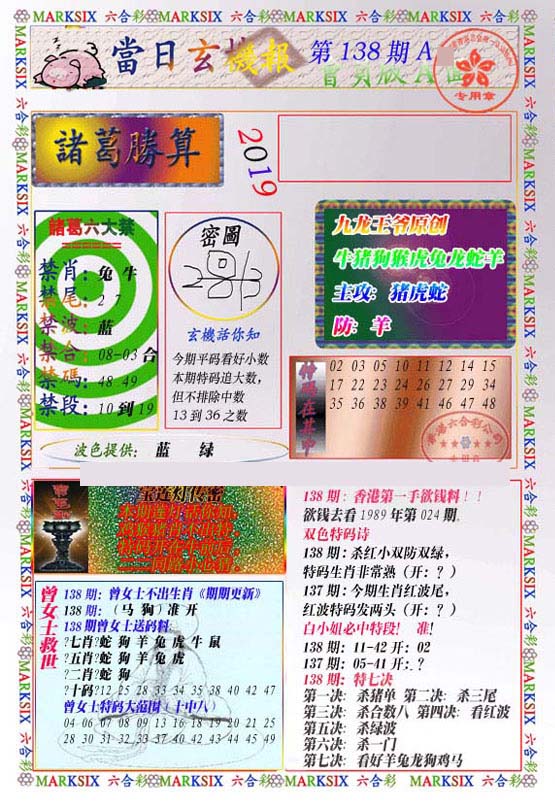 MARKSIX 六合彩 MARKSIX 六合彩 MARKSIX 六合彩 MARKSIX 六合彩
當日玄機報
第138期A
专用章
諸葛勝算
2019
諸葛六大禁
禁肖：兔牛
禁尾：2 7
禁波：蓝
禁合：08-03合
禁碼：48-49
禁段：10到19
密圖
玄機话你知
今期平码看好小数
本期特码追大数，
但不排除中数
13到36之数
九龙王爷原创
牛猪狗猴虎兔龙蛇羊
主攻：猪虎蛇
防：羊
特码在其中
02 03 05 10 11 12 14 15
17 22 23 24 26 27 29 34
35 36 38 39 41 46 47 48
香港六合彩公司
波色提供： 蓝 绿
曾女士救世
138期：曾女士不出生肖《期期更新》
138期：（马 狗）准开
138期曾女士送码料
?七肖?蛇 狗 羊 兔 虎 牛 鼠
?五肖?蛇 狗 羊 兔 虎
?二肖?蛇 狗
?十码?12 25 28 33 34 35 38 40 42 47
曾女士特码大范围（十中八）
04 06 07 08 09 13 15 16 18 19 20 21 25
28 30 31 32 33 37 40 42 43 44 45 49
138期：香港第一手欲钱料！！
欲钱去看1989年第024期.
双色特码诗
138期：杀红小双防双绿，
特码生肖非常熟（开：？）
137期：今期生肖红波尾，
红波特码发两头（开：？）
白小姐必中特段！ 准！
138期：11-42开：02
137期：05-41开：？
138期：特七决
第一决：杀猪单 第二决：杀三尾
第三决：杀合数八 第四决：看红波
第五决：杀绿波
第六决：杀一门
第七决：看好羊兔龙狗鸡马
MARKSIX 六合彩 MARKSIX 六合彩 MARKSIX 六合彩 MARKSIX 六合彩